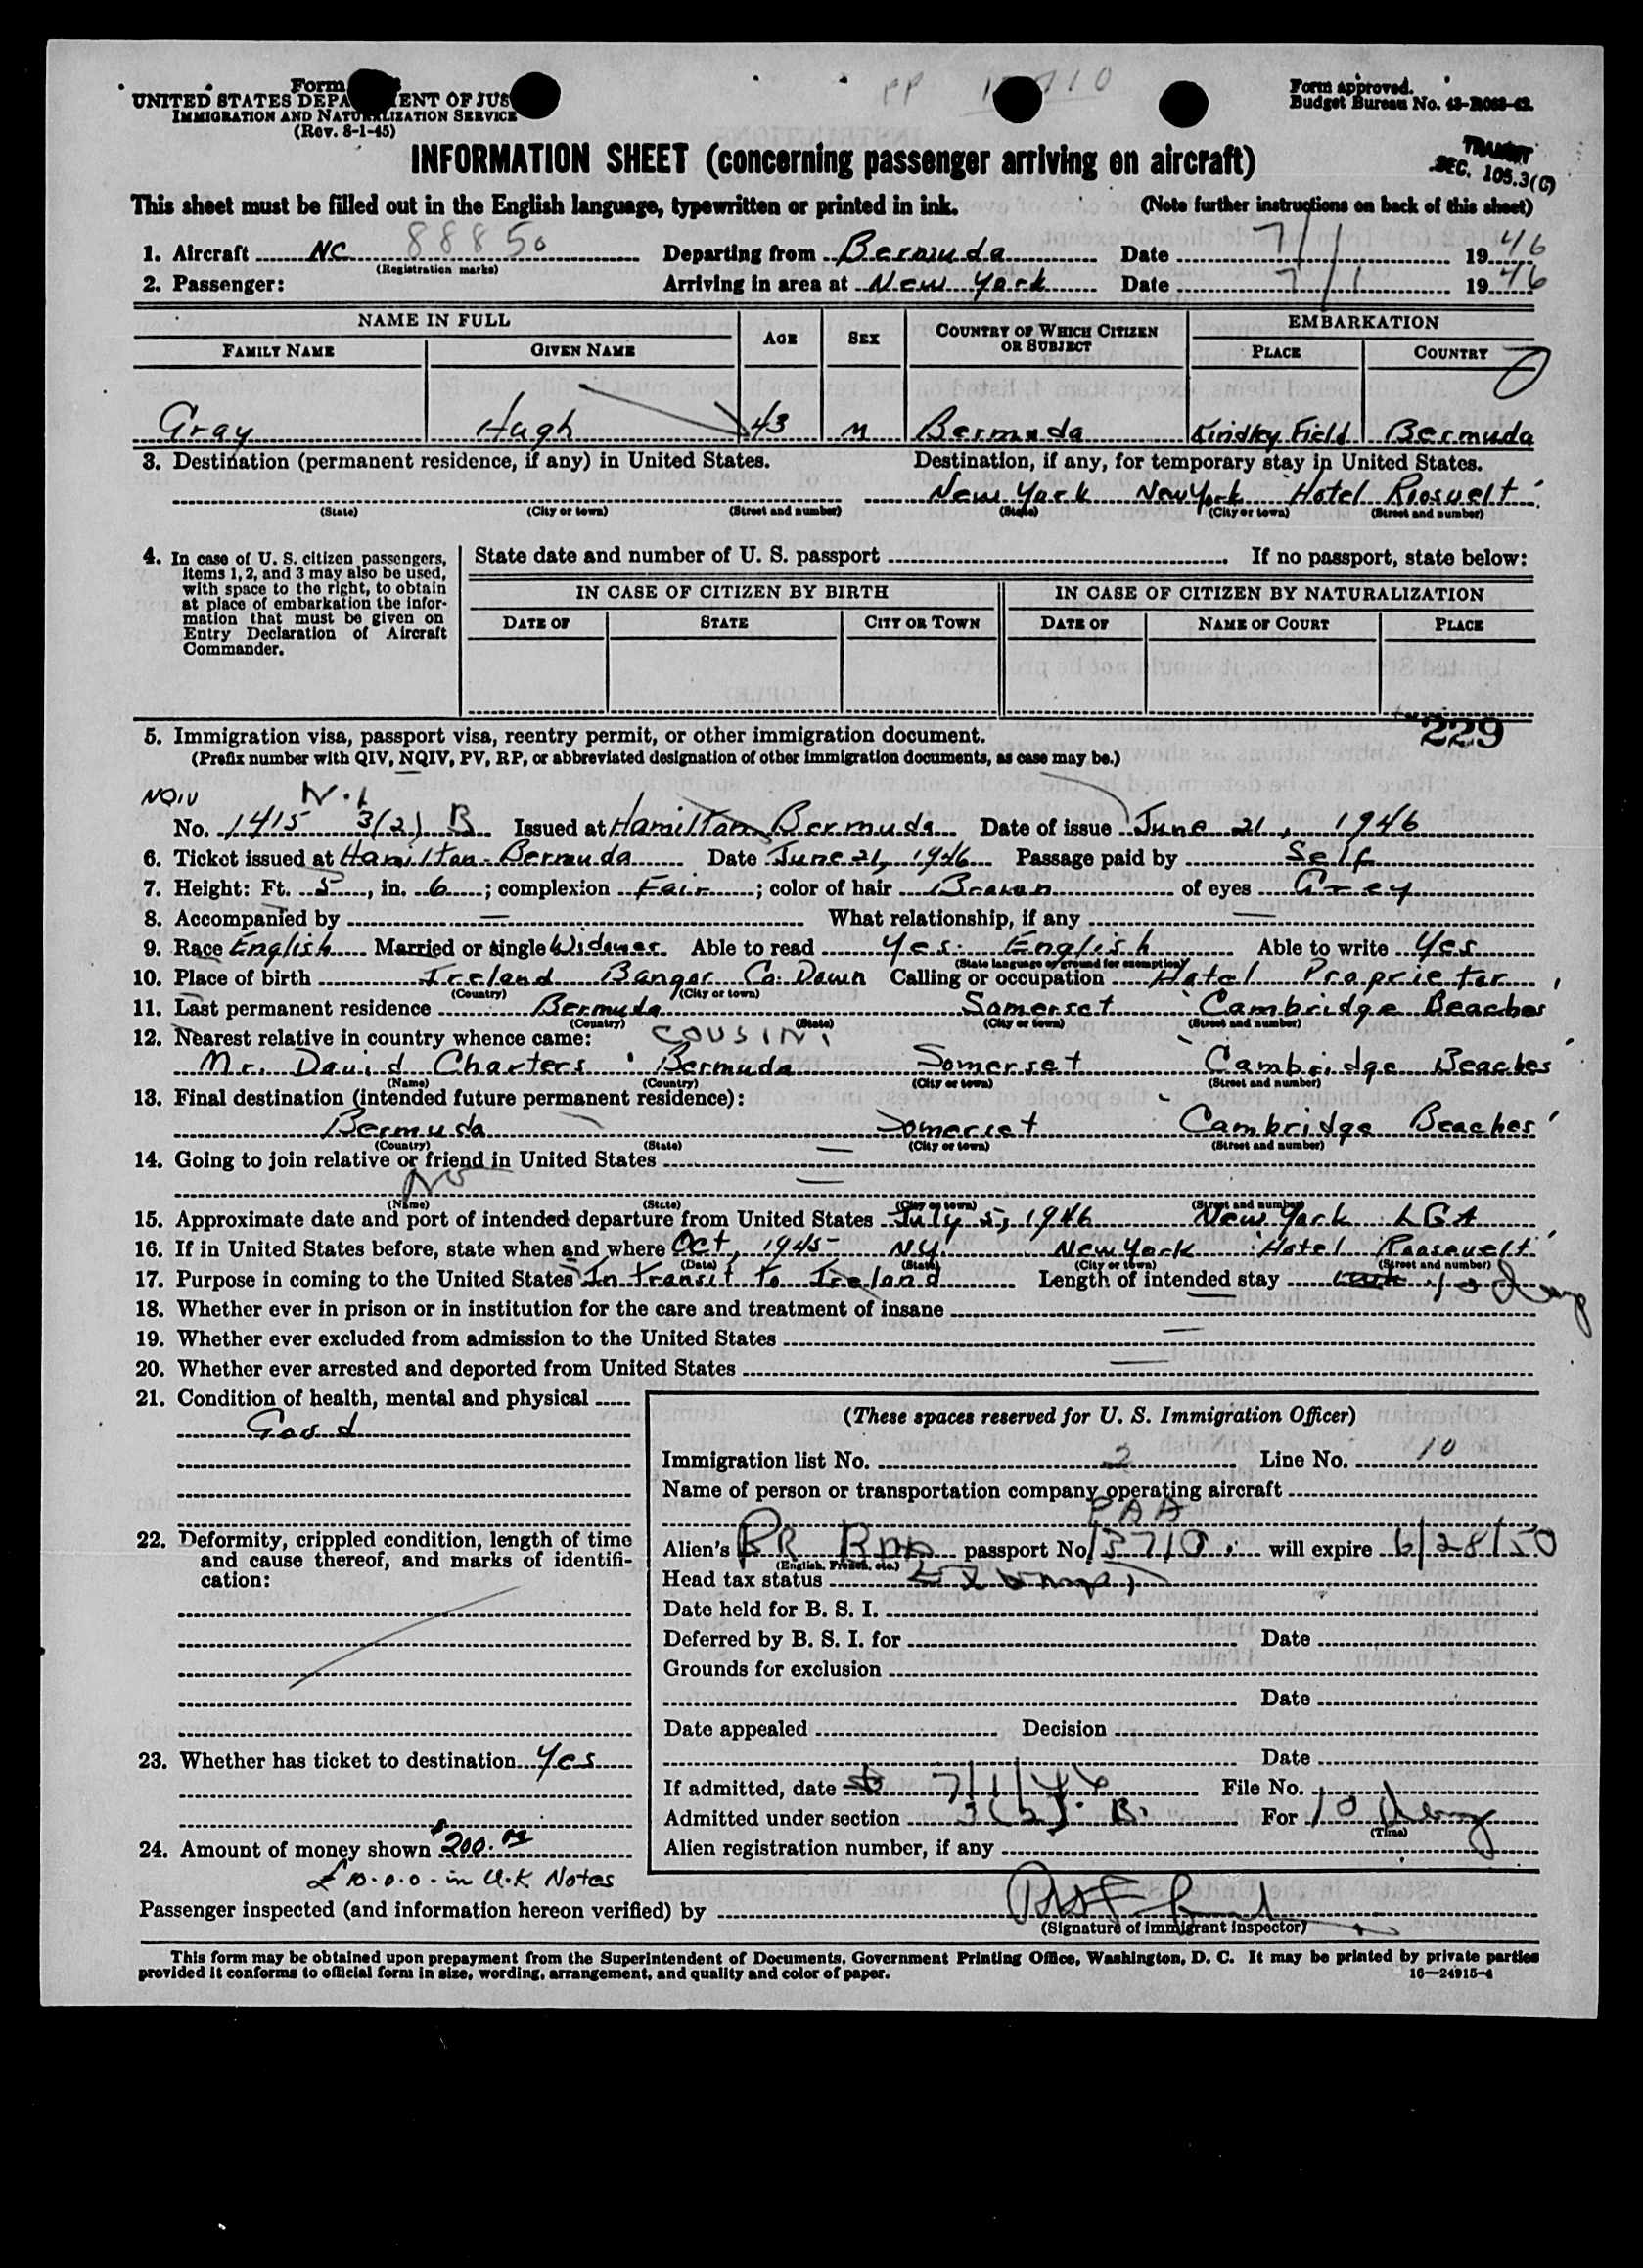 Form
UNITED STATES DEPA ENT OF JUS
IMMIGRATION AND NATURALIZATION SERVICE
(Rev. 8-1-45)
PP
Form approved.
Budget Bureau No.
TRANSIT
SEC. 105.3(C)
INFORMATION SHEET (concerning passenger arriving on aircraft)
This sheet must be filled out in the English language, typewritten or printed in ink. (Note further instructions on back of this sheet)
1. Aircraft NC 88850 Departing from Bermuda Date 7/1 1946
(Registration marks)
2. Passenger: Arriving in area at New York Date 7/1 1946
NAME IN FULL AGE SEX COUNTRY OF WHICH CITIZEN OR SUBJECT EMBARKATION
FAMILY NAME GIVEN NAME PLACE COUNTRY
Gray Hugh 43 M Bermuda Kindley Field Bermuda
3. Destination (permanent residence, if any) in United States. Destination, if any, for temporary stay in United States.
New York New York 'Hotel Roosvelt'
(State) (City or town) (Street and number) (State) (City or town) (Street and number)
4. In case of U. S. citizen passengers, items 1, 2, and 3 may also be used, with space to the right, to obtain at place of embarkation the information that must be given on Entry Declaration of Aircraft Commander.
State date and number of U. S. passport If no passport, state below:
IN CASE OF CITIZEN BY BIRTH IN CASE OF CITIZEN BY NATURALIZATION
DATE OF STATE CITY OR TOWN DATE OF NAME OF COURT PLACE
229
5. Immigration visa, passport visa, reentry permit, or other immigration document.
(Prefix number with QIV, NQIV, PV, RP, or abbreviated designation of other immigration documents, as case may be.)
NQIV
No. 1415 3(2) B Issued at Hamilton Bermuda Date of issue June 21, 1946
6. Ticket issued at Hamilton-Bermuda Date June 21, 1946 Passage paid by Self
7. Height: Ft. 5, in. 6; complexion Fair; color of hair Brown of eyes Grey
8. Accompanied by — What relationship, if any —
9. Race English Married or single Widower Able to read Yes. English Able to write Yes
(State language or ground for exemption)
10. Place of birth Ireland Bangor Co. Down Calling or occupation Hotel Proprietor
(Country) (City or town)
11. Last permanent residence Bermuda Somerset 'Cambridge Beaches'
(Country) (State) (City or town) (Street and number)
12. Nearest relative in country whence came: COUSIN
Mr. David Charters Bermuda Somerset 'Cambridge Beaches'
(Name) (Country) (City or town) (Street and number)
13. Final destination (intended future permanent residence):
Bermuda Somerset 'Cambridge Beaches'
(Country) (State) (City or town) (Street and number)
14. Going to join relative or friend in United States —
No —
(Name) (State) (City or town) (Street and number)
15. Approximate date and port of intended departure from United States July 5, 1946 New York LGA
16. If in United States before, state when and where Oct, 1945 N.Y. New York 'Hotel Roosevelt'
(Date) (State) (City or town) (Street and number)
17. Purpose in coming to the United States In transit to Ireland Length of intended stay 10 days
18. Whether ever in prison or in institution for the care and treatment of insane
19. Whether ever excluded from admission to the United States —
20. Whether ever arrested and deported from United States —
21. Condition of health, mental and physical
Good
22. Deformity, crippled condition, length of time and cause thereof, and marks of identification:
23. Whether has ticket to destination Yes
24. Amount of money shown $200.00
£10.0.0. in U.K Notes
(These spaces reserved for U. S. Immigration Officer)
Immigration list No. 2 Line No. 10
Name of person or transportation company operating aircraft
PAA
Alien's BR passport No. 13710 will expire 6/28/50
(English, French, etc.)
Head tax status Exempt
Date held for B. S. I.
Deferred by B. S. I. for Date
Grounds for exclusion
Date
Date appealed Decision
Date
If admitted, date 7/1/46 File No.
Admitted under section 3(2). B. For 10 days
(Time)
Alien registration number, if any
Passenger inspected (and information hereon verified) by
(Signature of immigrant inspector)
This form may be obtained upon prepayment from the Superintendent of Documents, Government Printing Office, Washington, D. C. It may be printed by private parties
provided it conforms to official form in size, wording, arrangement, and quality and color of paper. 16—24915-4